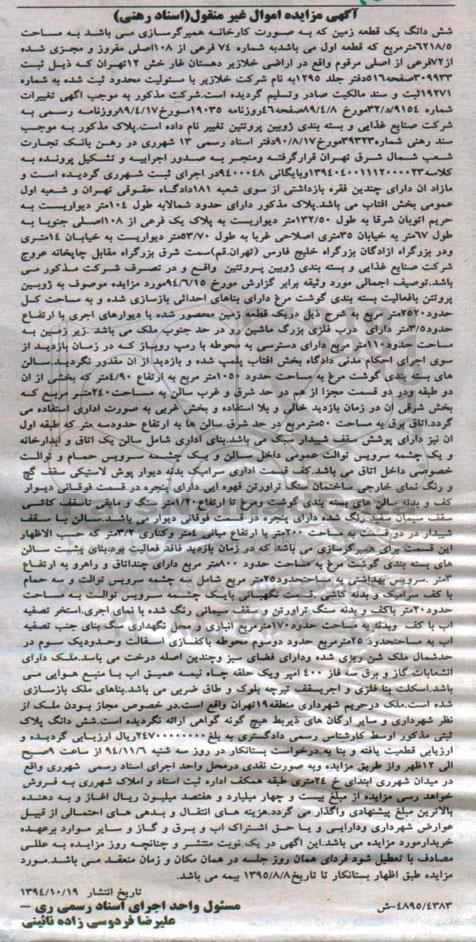 آگهی مزایده اموال غیر منقول(اسناد رهنی)
شش دانگ یک قطعه زمین که به صورت کارخانه همبرگرسازی می باشد به مساحت
۶۲۱۸/۵مترمربع که قطعه اول می باشدبه شماره ۷۴ فرعی از ۱۰۸اصلی مفروز و مجزی شده
از۷۲فرعی از اصلی مرقوم واقع در اراضی خلازیر دهستان غار خش ۱۲تهران که ذیل ثبت
۳۰۹۹۳۳صفحه۵۱۶دفتر جلد ۱۲۹۵به نام شرکت خلازیر با مسئولیت محدود ثبت شده به شماره
۱۹۲۷۱ثبت و سند مالکیت صادر وتسلیم گردیده است.شرکت مذکور به موجب آگهی تغییرات
شماره ۳۲/د/۹۱۵۴مورخ ۸۹/۴/۸صفحه۴۶روزنامه ۱۹۰۳۵مورخ۸۹/۴/۱۷روزنامه رسمی به
شرکت صنایع غذایی و بسته بندی ژوبین پروتئین تغییر نام داده است.پلاک مذکور به موجب
سند رهنی شماره۳۹۳۲۳مورخ۹۰/۸/۱۷دفتر اسناد رسمی ۱۳ شهرری در رهن بانک تجارت
شعب شمال شرق تهران قرارگرفته ومنجر به صدور اجراییه و تشکیل پرونده به
کلاسه۱۳۹۴۰۴۰۰۱۱۱۲۰۰۰۰۲۳وبایگانی ۹۴۰۰۰۴۸در اجرای ثبت شهرری گردیده است و
مازاد ان دارای چندین فقره بازداشتی از سوی شعبه ۱۸۱دادگاه حقوقی تهران و شعبه اول
عمومی بخش افتاب می باشد.پلاک مذکور دارای حدود شمالابه طول ۱۰۴متر دیواریست به
حریم اتوبان شرقا به طول ۱۳۲/۵۰متر دیواریست به پلاک یک فرعی از ۱۰۸اصلی جنوبا به
طول ۶۷متر به خیابان ۳۵متری اصلاحی غربا به طول ۵۳/۷۰متر دیواریست به خیابان ۱۴متری
ودر بزرگراه ازادگان بزرگراه خلیج فارس (تهران.قم)سمت شرق بزرگراه مقابل چاپخانه عروج
شرکت صنایع غذایی و بسته بندی ژوبین پروتئین واقع و در تصرف شرکت مذکور می
باشد.توصیف اجمالی مورد وثیقه برابر گزارش مورخ ۹۴/۶/۱۵مورد مزایده موصوف به ژوبین
پروتئن بافعالیت بسته بندی گوشت مرغ دارای بناهای احداثی بازسازی شده و به مساحت کل
حدود۲۵۲۰متر مربع به شرح ذیل دریک قطعه زمین محصور شده با دیوارهای اجری با ارتفاع
حدود۳/۵متر دارای درب فلزی بزرگ ماشین رو در حد جنوب ملک می باشد .زیر زمین به
مساحت حدود۱۱۰متر مربع دارای دسترسی به محوطه با رمپ روباز که در زمان بازدید از
سوی اجرای احکام مدنی دادگاه بخش افتاب پلمب شده و بازدید از ان مقدور نگردید.سالن
های بسته بندی گوشت مرغ به مساحت حدود ۱۰۵۰متر مربع به ارتفاع ۴/۹۰متر که بخشی از ان
دو طبقه ودر دو قسمت مجزا از هم در حد شرق و غرب سالن به مساحت۲۴۰متر مربع که
بخش شرقی آن در زمان بازدید خالی و بلا استفاده و بخش غربی به صورت اداری استفاده می
گردد.اتاق برق به مساحت ۵۰مترمربع در حد شرق سالن ها به ارتفاع حدودسه متر که طبقه اول
ان نیز دارای پوشش سقف شیبدار سبک می باشد.بنای اداری شامل سالن یک اتاق و ابدارخانه
و یک چشمه سرویس توالت عمومی داخل سالن و یک چشمه سرویس حمام و توالت
خصوصی داخل اتاق می باشد.کف قسمت اداری سرامیک بدنه دیوار پوش لاستیکی سقف گچ
و رنگ نمای خارجی ساختمان سنگ تراورتن قهوه ایی دارای پنجره در قسمت فوقانی دیوار
کف و بدنه سالن های بسته بندی گوشت ومرغ تا ارتفاع ۱/۲۰متر سنگ و مابقی تاسقف کاشی
سقف سیمان سفید رنگ شده دارای پنجره در قسمت فوقانی دیوار می باشد.سالن با سقف
شیبدار در دو قسمت به مساحت ۲۰۰متر با ارتفاع میانی ۴متر وکناری ۳/۲متر که حسب الاظهار
این قسمت برای همبرگرسازی می باشد که در زمان بازدید فاقد فعالیت بود.بنای پشت سالن
های بسته بندی گوشت مرغ به مساحت حدود ۸۰۰متر مربع دارای چنداتاق و راهرو به ارتفاع
۳متر .سرویس بهداشتی به مساحتحدود۲۵متر مربع شامل سه چشمه سرویس توالت و سه حمام
با کف سرامیک و بدنه کاشی .قسمت نگهبانی بایک چشمه سرویس توالت به مساحت
حدود۲۰متر باکف و بدنه سنگ تراورتن و سقف سیمانی رنگ شده با نمای اجری.استخر تصفیه
اب با کف وبدنه به مساحت حدود۱۷۰مترمربع انباری و محل نگهداری سگ بنای جنب تصفیه
اب به مساحتحدود ۲۵مترمربع حدود دوسوم محوطه باکفسازی اسفالت وحدودیک سوم در
حدشمال ملک شن ریزی شده ودارای فضای سبز وچندین اصله درخت می باسد.ملک دارای
انشعابات گاز و برق سه فاز ۴۰۰ امپر ویک حلقه چاه نیمه عمیق اب با منبع هوایی می
باشد.اسکلت بنا فلزی و اجریسقف تیرچه بلوک و طاق ضربی می باشد.بناهای ملک بازسازی
شده است.ملک درحریم شهرداری منطقه۱۹تهران واقع است.در خصوص مجاز بودن ملک از
نظر شهرداری و سایر ارگان های ذیربط هیچ گونه گواهی ارائه نگردیده است.شش دانگ پلاک
ثبتی مذکور اوسط کارشناس رسمی دادگستری به بلغ۲۴۷۰۰۰۰۰۰۰۰ریال ارزیابی گردیده و
ارزیابی قطعیت یافته و بنا به درخواست بستانکار در روز سه شنبه ۹۴/۱۱/۶ از ساعت ۹صبح
الی ۱۲ظهر واز طریق مزایده وبه صورت نقدی درمحل واحد اجرای اسناد رسمی شهرری واقع
در میدان شهرری ابتدای خ ۲۴متری طبقه همکف اداره ثبت اسناد و املاک شهرری به فروش
خواهد رسی مزایده از مبلغ بیست و چهار میلیارد و هفتصد میلیون ریال اغاز و به دهنده
بالاترین مبلغ پیشنهادی واگذار می گردد.هزینه های انتقال و بدهی های احتمالی از قبیل
عوارض شهرداری ودارایی و یا حق اشتراک اب و برق و گاز و سایر موارد برعهده
خریدارمورد مزایده می باشد.این اگهی در یک نوبت منتشر و چنانچه روز مزایده به عللی
مصادف با تعطیل شود فردای همان روز جلسه در همان مکان و زمان منعقد می باشد.مورد
مزایده طبق اظهار بستانکار تا تاریخ ۱۳۹۵/۸/۸ بیمه می باشد.
تاریخ انتشار ۱۳۹۴/۱۰/۱۹
۴۸۹۵/۴۳۸۳-ش
مسئول واحد اجرای اسناد رسمی ری –
علیرضا فردوسی زاده نائینی